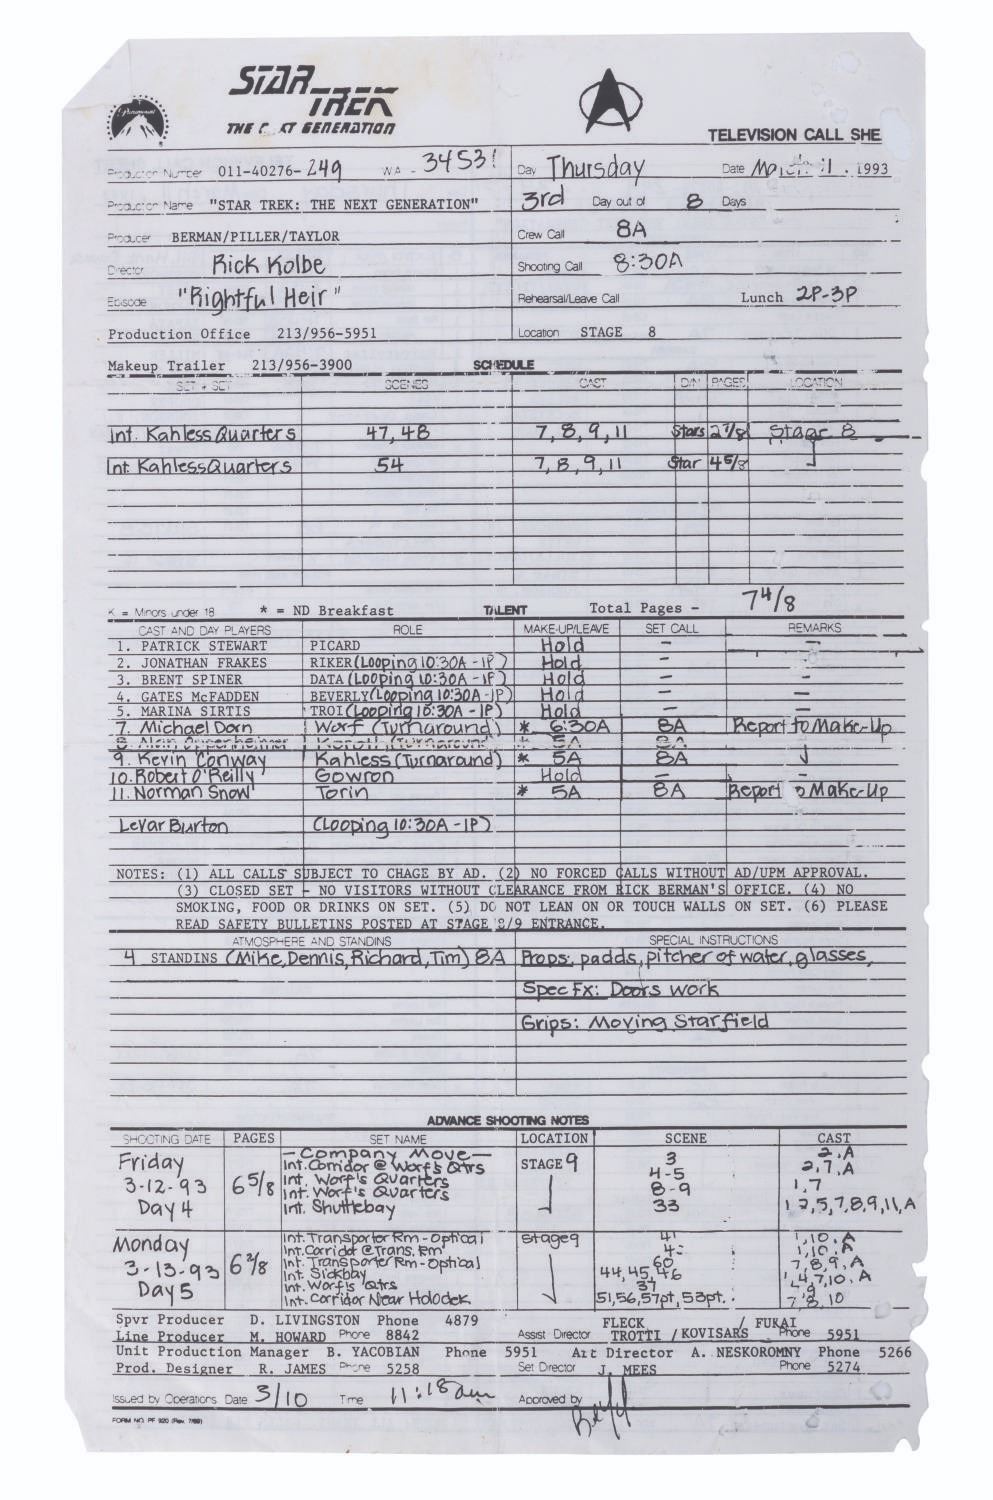 Paramount
STAR TREK
THE NEXT GENERATION
TELEVISION CALL SHE
Production Number 011-40276-249 WA - 34531 Day Thursday Date March 11, 1993
Production Name "STAR TREK: THE NEXT GENERATION" 3rd Day out of 8 Days
Producer BERMAN/PILLER/TAYLOR Crew Call 8A
Director Rick Kolbe Shooting Call 8:30A
Episode "Rightful Heir" Rehearsal/Leave Call Lunch 2P-3P
Production Office 213/956-5951 Location STAGE 8
Makeup Trailer 213/956-3900 SCHEDULE
SET + SET SCENES CAST D/N PAGES LOCATION
Int. Kahless Quarters 47, 48 7, 8, 9, 11 Stars 2 7/8 Stage 8
Int. Kahless Quarters 54 7, 8, 9, 11 Star 4 5/8
K = Minors under 18 * = ND Breakfast TALENT Total Pages - 7 4/8
CAST AND DAY PLAYERS ROLE MAKE-UP/LEAVE SET CALL REMARKS
1. PATRICK STEWART PICARD Hold —
2. JONATHAN FRAKES RIKER (Looping 10:30A - 1P) Hold — —
3. BRENT SPINER DATA (Looping 10:30A - 1P) Hold — —
4. GATES McFADDEN BEVERLY (Looping 10:30A - 1P) Hold — —
5. MARINA SIRTIS TROI (Looping 10:30A - 1P) Hold — —
7. Michael Dorn Worf (Turnaround) * 6:30A 8A Report to Make-Up
8. Alan Oppenheimer Koroth (Turnaround) * 5A 8A
9. Kevin Conway Kahless (Turnaround) * 5A 8A
10. Robert O'Reilly Gowron Hold — —
11. Norman Snow Torin * 5A 8A Report to Make-Up
LeVar Burton (Looping 10:30A - 1P)
NOTES: (1) ALL CALLS SUBJECT TO CHAGE BY AD. (2) NO FORCED CALLS WITHOUT AD/UPM APPROVAL.
(3) CLOSED SET - NO VISITORS WITHOUT CLEARANCE FROM RICK BERMAN'S OFFICE. (4) NO
SMOKING, FOOD OR DRINKS ON SET. (5) DO NOT LEAN ON OR TOUCH WALLS ON SET. (6) PLEASE
READ SAFETY BULLETINS POSTED AT STAGE 8/9 ENTRANCE.
ATMOSPHERE AND STANDINS SPECIAL INSTRUCTIONS
4 STANDINS (Mike, Dennis, Richard, Tim) 8A Props: padds, pitcher of water, glasses,
Spec Fx: Doors work
Grips: Moving Starfield
ADVANCE SHOOTING NOTES
SHOOTING DATE PAGES SET NAME LOCATION SCENE CAST
Friday 3-12-93 Day 4 6 5/8 STAGE 9
— Company Move —
Int. Corridor @ Worf's Qtrs 3 2, A
Int. Worf's Quarters 4-5 2, 7, A
Int. Worf's Quarters 8-9 1, 7
Int. Shuttlebay 33 1 2, 5, 7, 8, 9, 11, A
Monday 3-13-93 Day 5 6 2/8 Stage 9
Int. Transporter Rm - Optical 41 1, 10, A
Int. Corridor @ Trans. Rm 1, 10, A
Int. Transporter Rm - Optical 60 7, 8, 9, A
Int. Sickbay 44, 45, 46 1, 4, 7, 10, A
Int. Worf's Qtrs 37
Int. Corridor Near Holodek 51, 56, 57pt, 53pt. 7, 8, 10
Spvr Producer D. LIVINGSTON Phone 4879
Line Producer M. HOWARD Phone 8842 Assist Director FLECK TROTTI / KOVISARS / FUKAI Phone 5951
Unit Production Manager B. YACOBIAN Phone 5951 Art Director A. NESKOROMNY Phone 5266
Prod. Designer R. JAMES Phone 5258 Set Director J. MEES Phone 5274
Issued by Operations Date 3/10 Time 11:18am Approved by
FORM NO. PF 920 (Rev. 7/89)